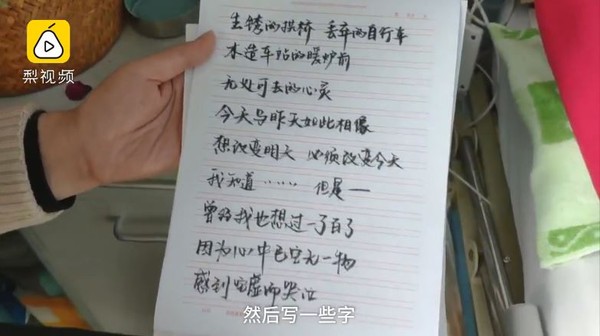 梨视频
生锈的拱桥 丢弃的自行车
木造车站的暖炉前
无处可去的心灵
今天与昨天如此相像
想改变明天 必须改变今天
我知道…… 但是—
曾经我也想过一了百了
因为心中已空无一物
感到空虚而哭泣
然后写一些字